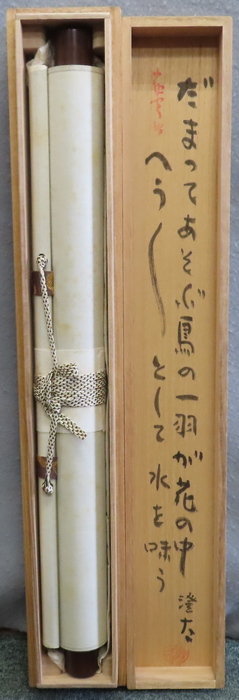 だまってあそぶ鳥の一羽が花の中
へうーとして水を味う
澄太